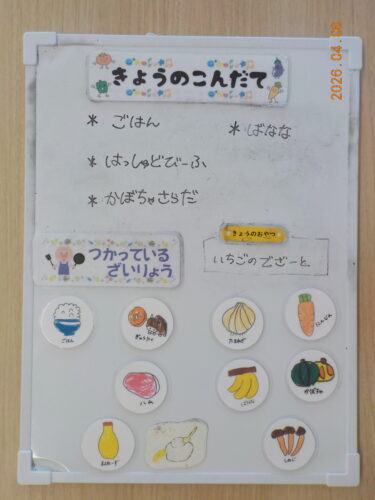 2026.04.08
きょうのこんだて
* ごはん
* ばなな
* はっしゅどびーふ
* かぼちゃさらだ
きょうのおやつ
つかっている
ざいりょう
いちごのでざーと
ごはん
たまねぎ
にんじん
ばなな
かぼちゃ
まよねーず
しめじ